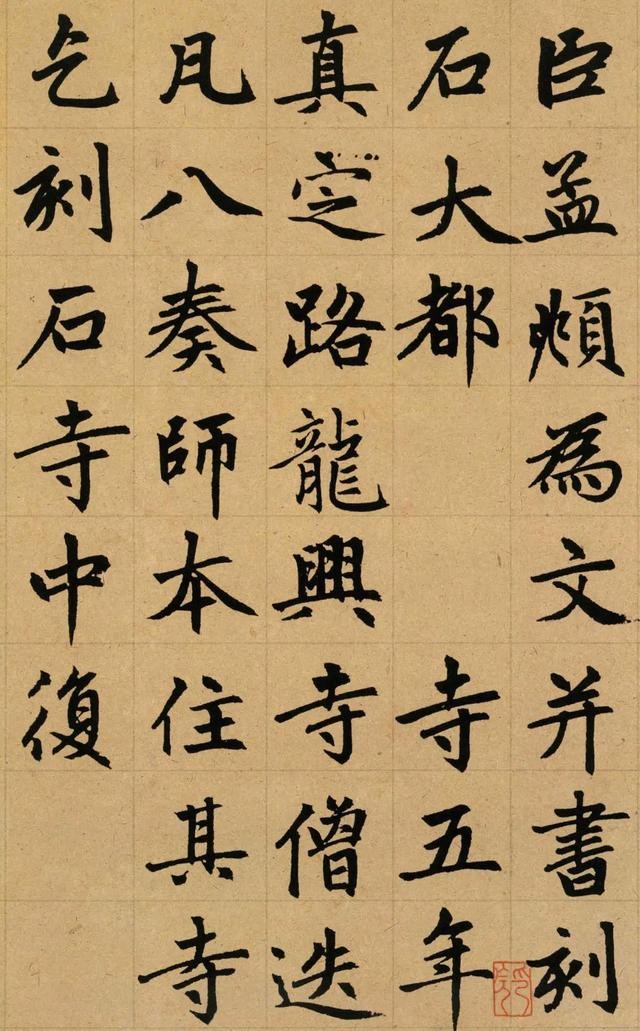 臣孟頫為文并書刻
石大都寺五年
真定路龍興寺僧迭
凡八奏師本住其寺
乞刻石寺中復